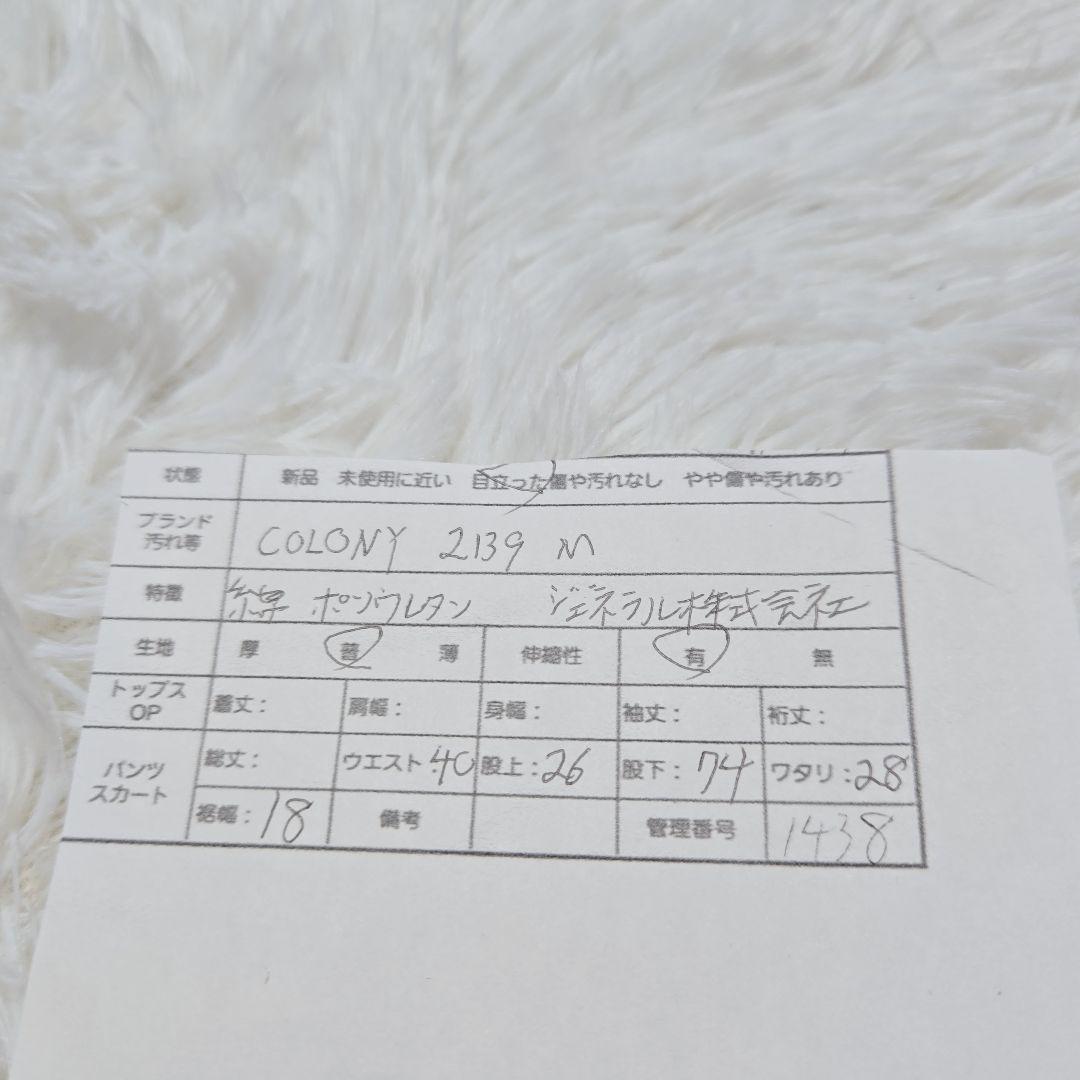 状態 新品 未使用に近い 目立った傷や汚れなし やや傷や汚れあり
ブランド 汚れ等 COLONY 2139 M
特徴 綿 ポリウレタン ジェネラル株式会社
生地 厚 普 薄 伸縮性 有 無
トップス OP 着丈: 肩幅: 身幅: 袖丈: 裄丈:
パンツ スカート 総丈: ウエスト:40 股上:26 股下:74 ワタリ:28
裾幅:18 備考 管理番号 1438